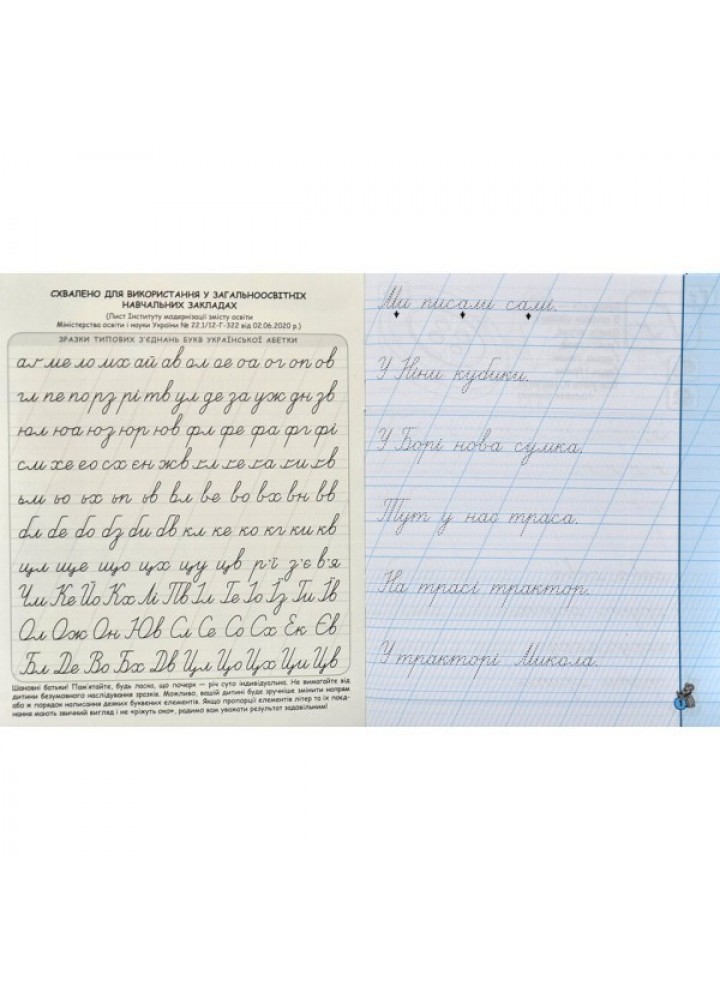 СХВАЛЕНО ДЛЯ ВИКОРИСТАННЯ У ЗАГАЛЬНООСВІТНІХ
НАВЧАЛЬНИХ ЗАКЛАДАХ
(Лист Інституту модернізації змісту освіти
Міністерства освіти і науки України № 22.1/12-Г-322 від 02.06.2020 р.)
ЗРАЗКИ ТИПОВИХ З'ЄДНАНЬ БУКВ УКРАЇНСЬКОЇ АБЕТКИ
ал ме ло мх ай ав ол ое оа ог оп ов
гл пе по рз рі тв ул де за уж дн зв
юл юа юз юр юв фл фе фа фг фі
сл хе ео сх єн жв ґл ґе ґа ґи ґв
ьм ьо ьх ьп ьв вл ве во вх вн вв
бл бе бо бз би бв кл ке ко кг ки кв
щл ще що щх щу щв р'ї з'є в'я
Чл Ке Йо Кх Лі Пв Іл Ге Їо Їз Ґи Їв
Ол Ож Он Юв Сл Се Со Сх Ек Єв
Бл Де Во Бх Дв Цл Цо Цх Щи Цв
Шановні батьки! Пам'ятайте, будь ласка, що почерк — річ суто індивідуальна. Не вимагайте від
дитини безумовного наслідування зразків. Можливо, вашій дитині буде зручніше змінити напрям
або ж порядок написання деяких буквених елементів. Якщо пропорції елементів літер та їх поєд-
нання мають звичний вигляд і не «ріжуть око», радимо вам уважати результат задовільним!
Ми писали сами.
У Ніни кубики.
У Борі нова сумка.
Тут у нас траса.
На трасі трактор.
У тракторі Микола.
1